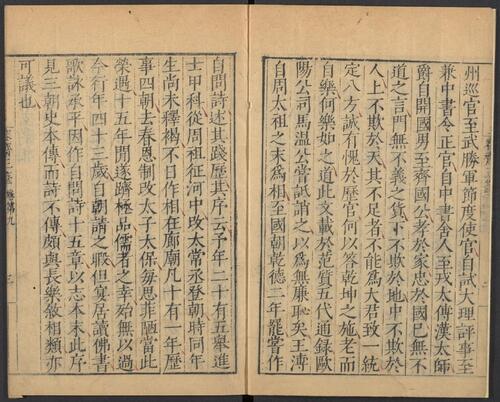 州巡官至武勝軍節度使官自試大理評事至
兼中書令正官自中書舍人至戎太傅漢太師
爵自開國男至齊國公孝於家忠於國已無不
道之言門無不義之貨下不欺於地中不欺於
人上不欺於天其不足者不能爲大君致一統
定八方誠有愧於歷官何以答乾坤之施老而
自樂何樂如之道此文載於范質五代通録歐
陽公司馬温公嘗詆誚之以爲無廉恥矣王溥
自周太祖之末爲相至國朝乾德二年罷嘗作
自問詩述其踐歷其序云予年二十有五舉進
士甲科從周祖征河中改太常丞登朝時同年
生尚未釋褐不日作相在廊廟凡十有一年歷
事四朝去春恩制改太子太保每思菲陋當此
榮遇十五年間遂躋極品儒者之幸殆無以過
今行年四十三歲自朝請之暇但宴居讀佛書
歌詠承平因作自問詩十五章以志本末此序
見三朝史本傳而詩不傳頗與長樂敘相類亦
可議也